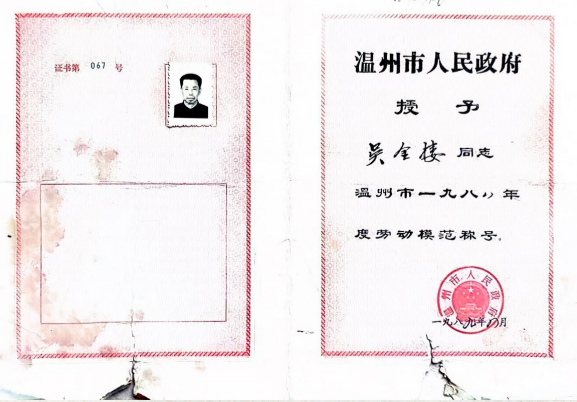 证书第 067 号
温州市人民政府
授 予
吴全楼 同志
温州市一九八八年
度劳动模范称号。
温州市人民政府
一九八九年 月